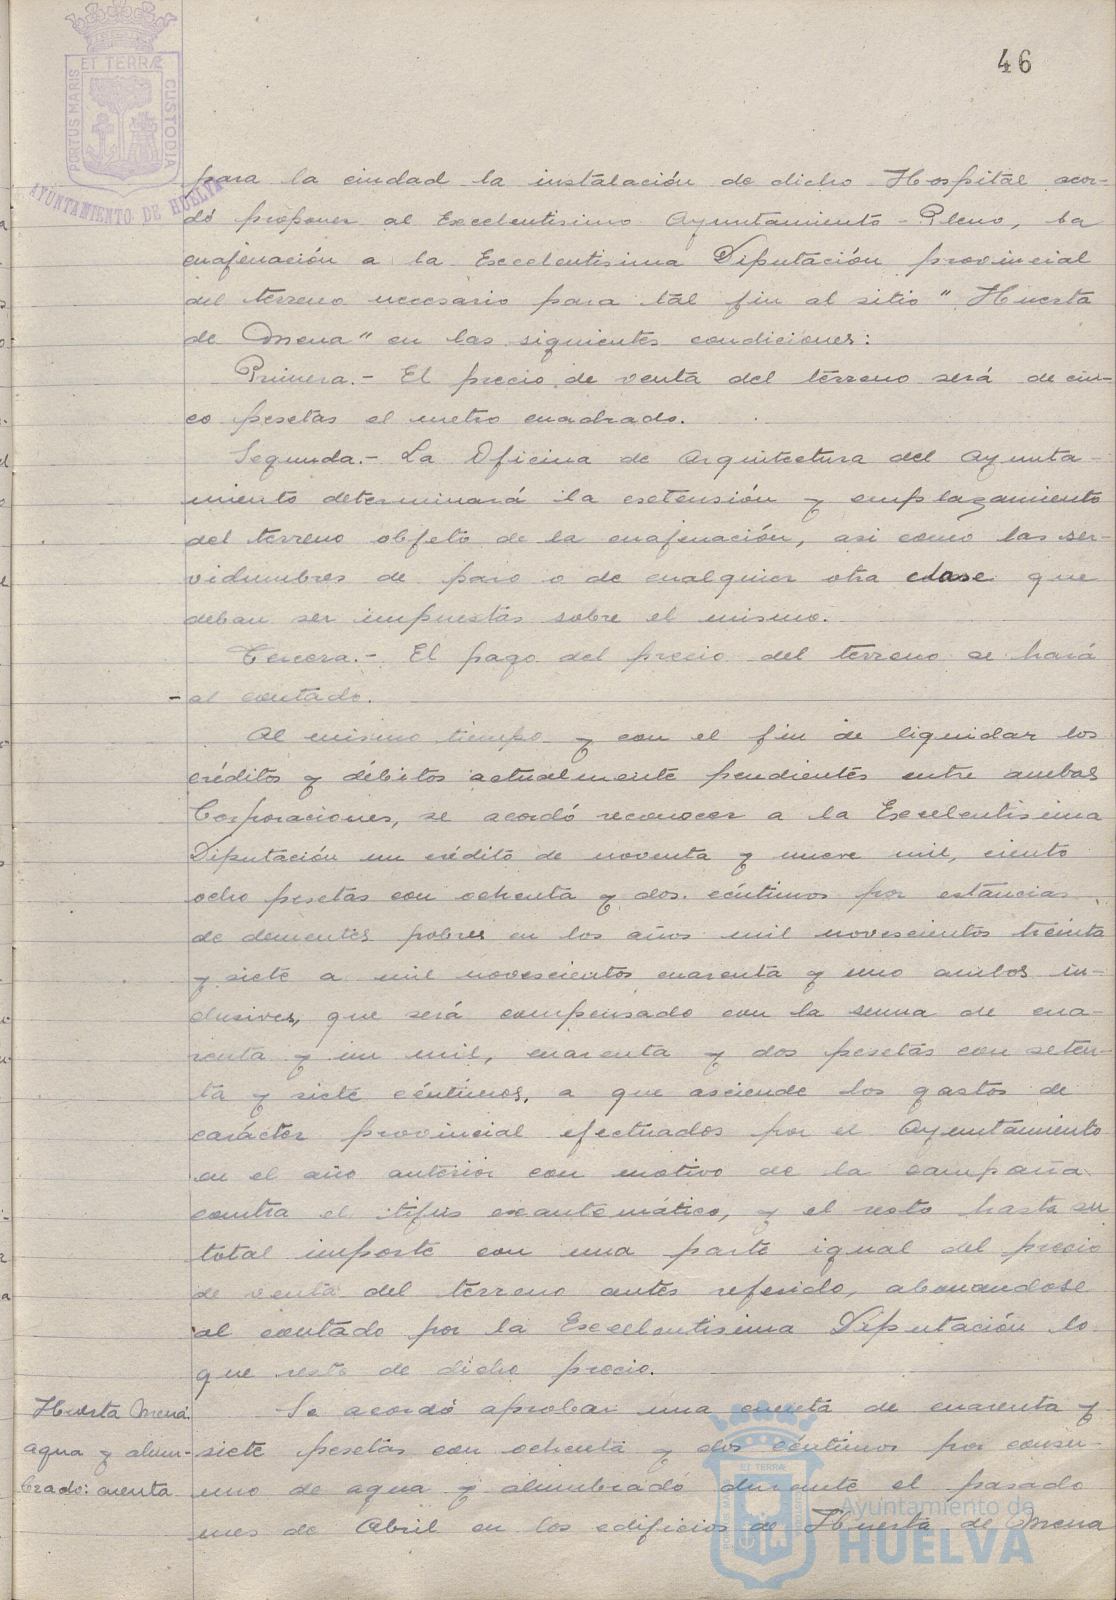 46
PORTUS MARIS ET TERRÆ CUSTODIA
AYUNTAMIENTO DE HUELVA
para la ciudad la instalación de dicho Hospital acor-
dó proponer al Excelentisimo Ayuntamiento-Pleno, la
enajenación a la Excelentisima Diputación provincial
del terreno necesario para tal fin al sitio "Huerta
de Mena" en las siguientes condiciones:
Primera.- El precio de venta del terreno será de cin-
co pesetas el metro cuadrado.
Segunda.- La Oficina de Arquitectura del Ayunta-
miento determinará la extensión y emplazamiento
del terreno objeto de la enajenación, asi como las ser-
vidumbres de paso o de cualquier otra clase que
deban ser impuestas sobre el mismo.
Tercera.- El pago del precio del terreno se hará
-al contado.
Al mismo tiempo y con el fin de liquidar los
créditos y débitos actualmente pendientes entre ambas
Corporaciones, se acordó reconocer a la Excelentisima
Diputación un crédito de noventa y nueve mil, ciento
ocho pesetas con ochenta y dos céntimos por estancias
de dementes pobres en los años mil novescientos treinta
y siete a mil novescientos cuarenta y uno ambos in-
clusives, que será compensado con la suma de cua-
renta y un mil, cuarenta y dos pesetas con seten-
ta y siete céntimos, a que asciende los gastos de
carácter provincial efectuados por el Ayuntamiento
en el año anterior con motivo de la campaña
contra el tifus exantemático, y el resto hasta su
total importe con una parte igual del precio
de venta del terreno antes referido, abonandose
al contado por la Excelentisima Diputación lo
que reste de dicho precio.
Huerta Mena.
agua y alum-
brado: cuenta
Se acordó aprobar una cuenta de cuarenta y
siete pesetas con ochenta y dos céntimos por consu-
mo de agua y alumbrado durante el pasado
mes de Abril en los edificios de Huerta de Mena
Ayuntamiento de
HUELVA